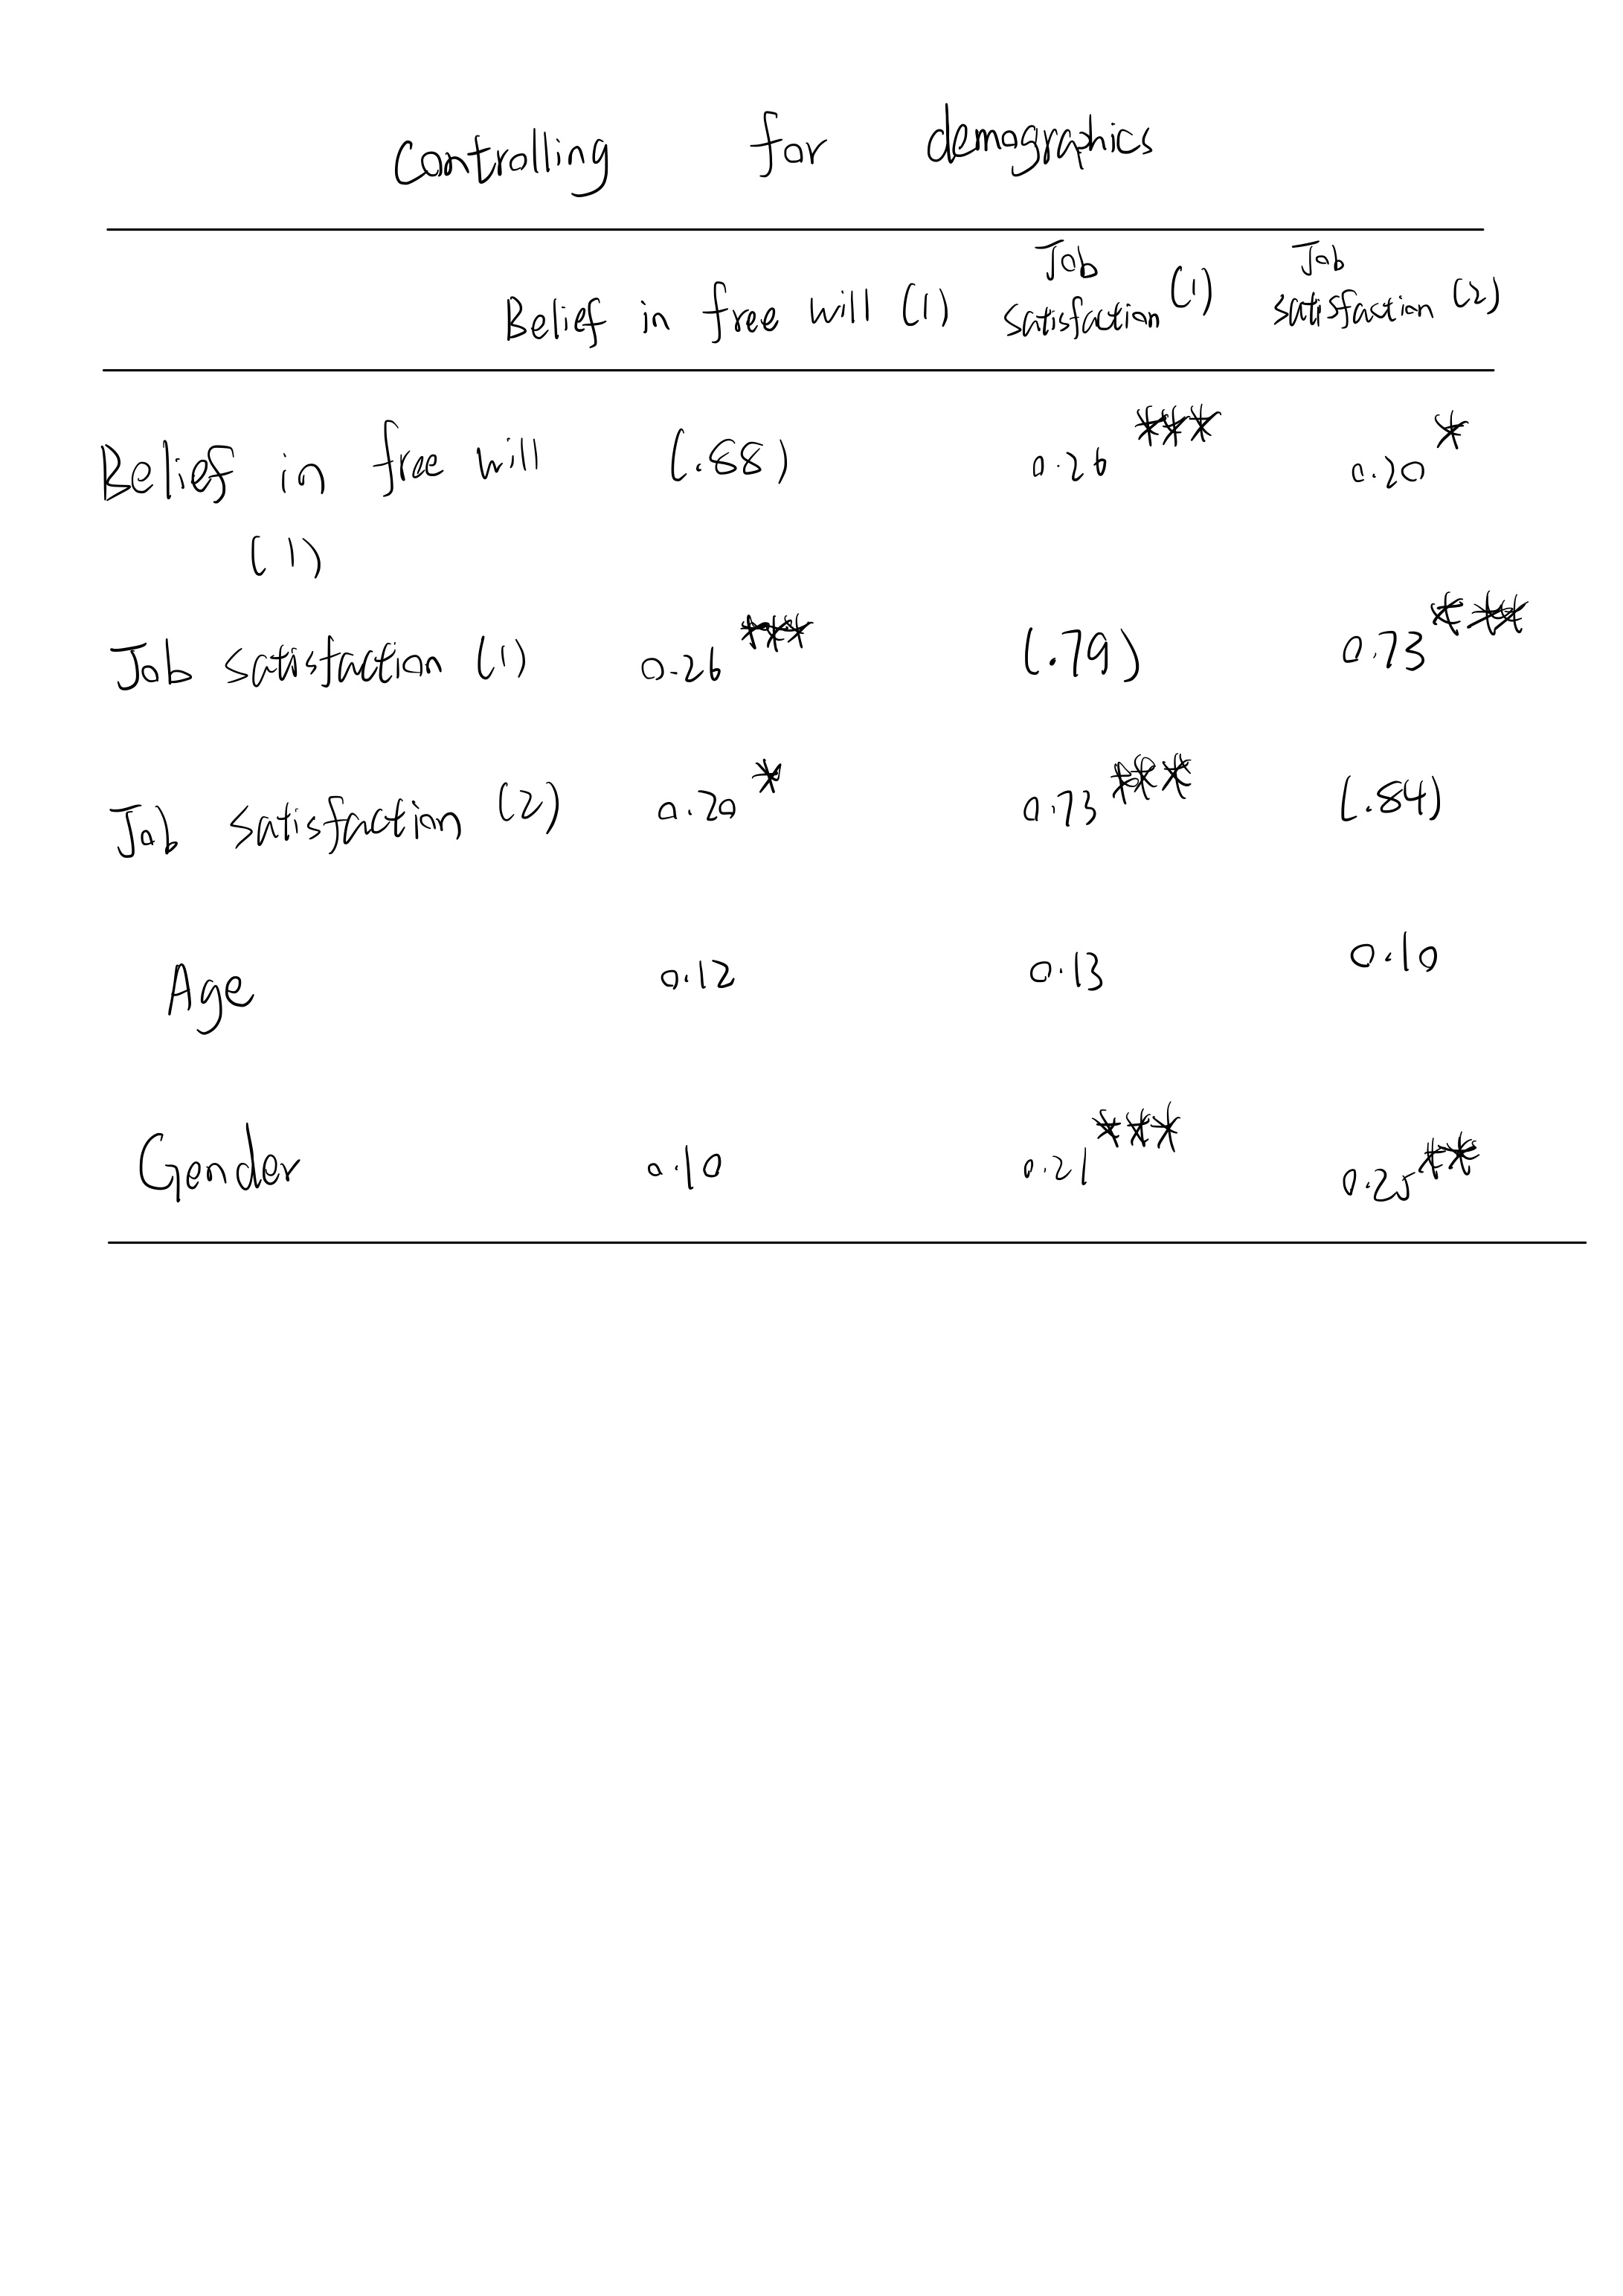 Controlling for demographics
Belief in free will (1) Job satisfaction (1) Job satisfaction (2)
Belief in free will (1) (.88) 0.26*** 0.20*
Job satisfaction (1) 0.26*** (.79) 0.73***
Job satisfaction (2) 0.20* 0.73*** (.84)
Age 0.12 0.13 0.10
Gender 0.10 0.21*** 0.25**